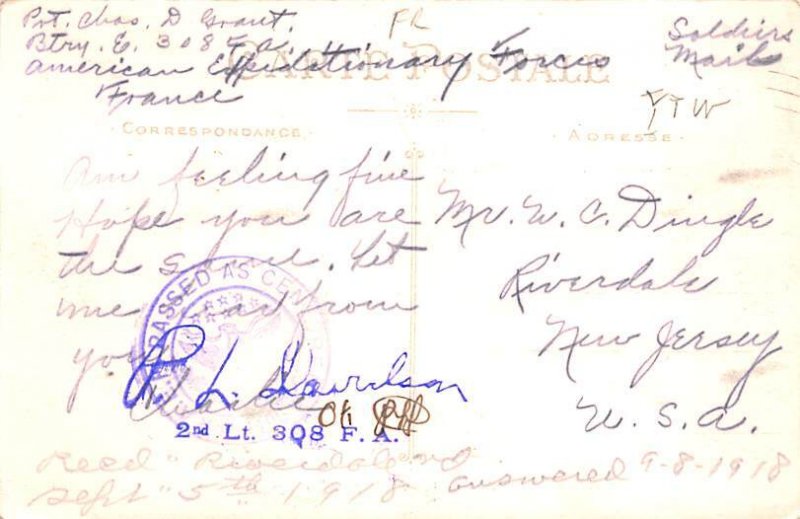 Pvt. Chas. D Grant.
Btry. E. 308 F.A.
American Expeditionary Forces
France
FR
Soldiers
Mail
CARTE POSTALE
YTW
CORRESPONDANCE
ADRESSE
Am feeling fine
Hope you are
the same. Let
me hear from
you
Charlie
Mr. W. C. Dingle
Riverdale
New Jersey
U. S. A.
PASSED AS CEN
L. Davidson
OK
2nd Lt. 308 F. A.
Recd "Riverdale NJ
Sept" 5th 1918 answered 9-8-1918